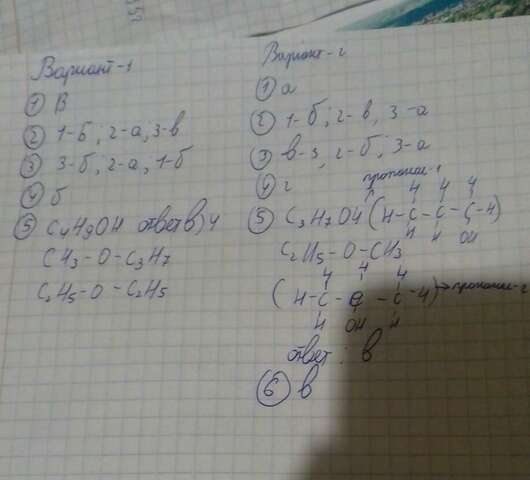 Вариант-1
① В
② 1-Б; 2-а; 3-в
③ 3-б; 2-а, 1-б
④ б
⑤ C4H9OH ответ в) 4
CH3-O-C3H7
C2H5-O-C2H5
Вариант-2
① а
② 1-б, 2-в, 3-а
③ в-3, 2-б, 3-а
④ г
пропанол-1
H H H
⑤ C3H7OH (H-C-C-C-H)
H H OH
C2H5-O-CH3
H H H
(H-C-C-C-H) → пропанол-2
H OH H
ответ: в
⑥ в